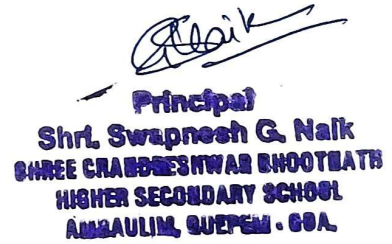 GNaik
Principal
Shri. Swapnesh G. Naik
SHREE CHANDRESHWAR BHOOTNATH
HIGHER SECONDARY SCHOOL
AMBAULIM, QUEPEM - GOA.